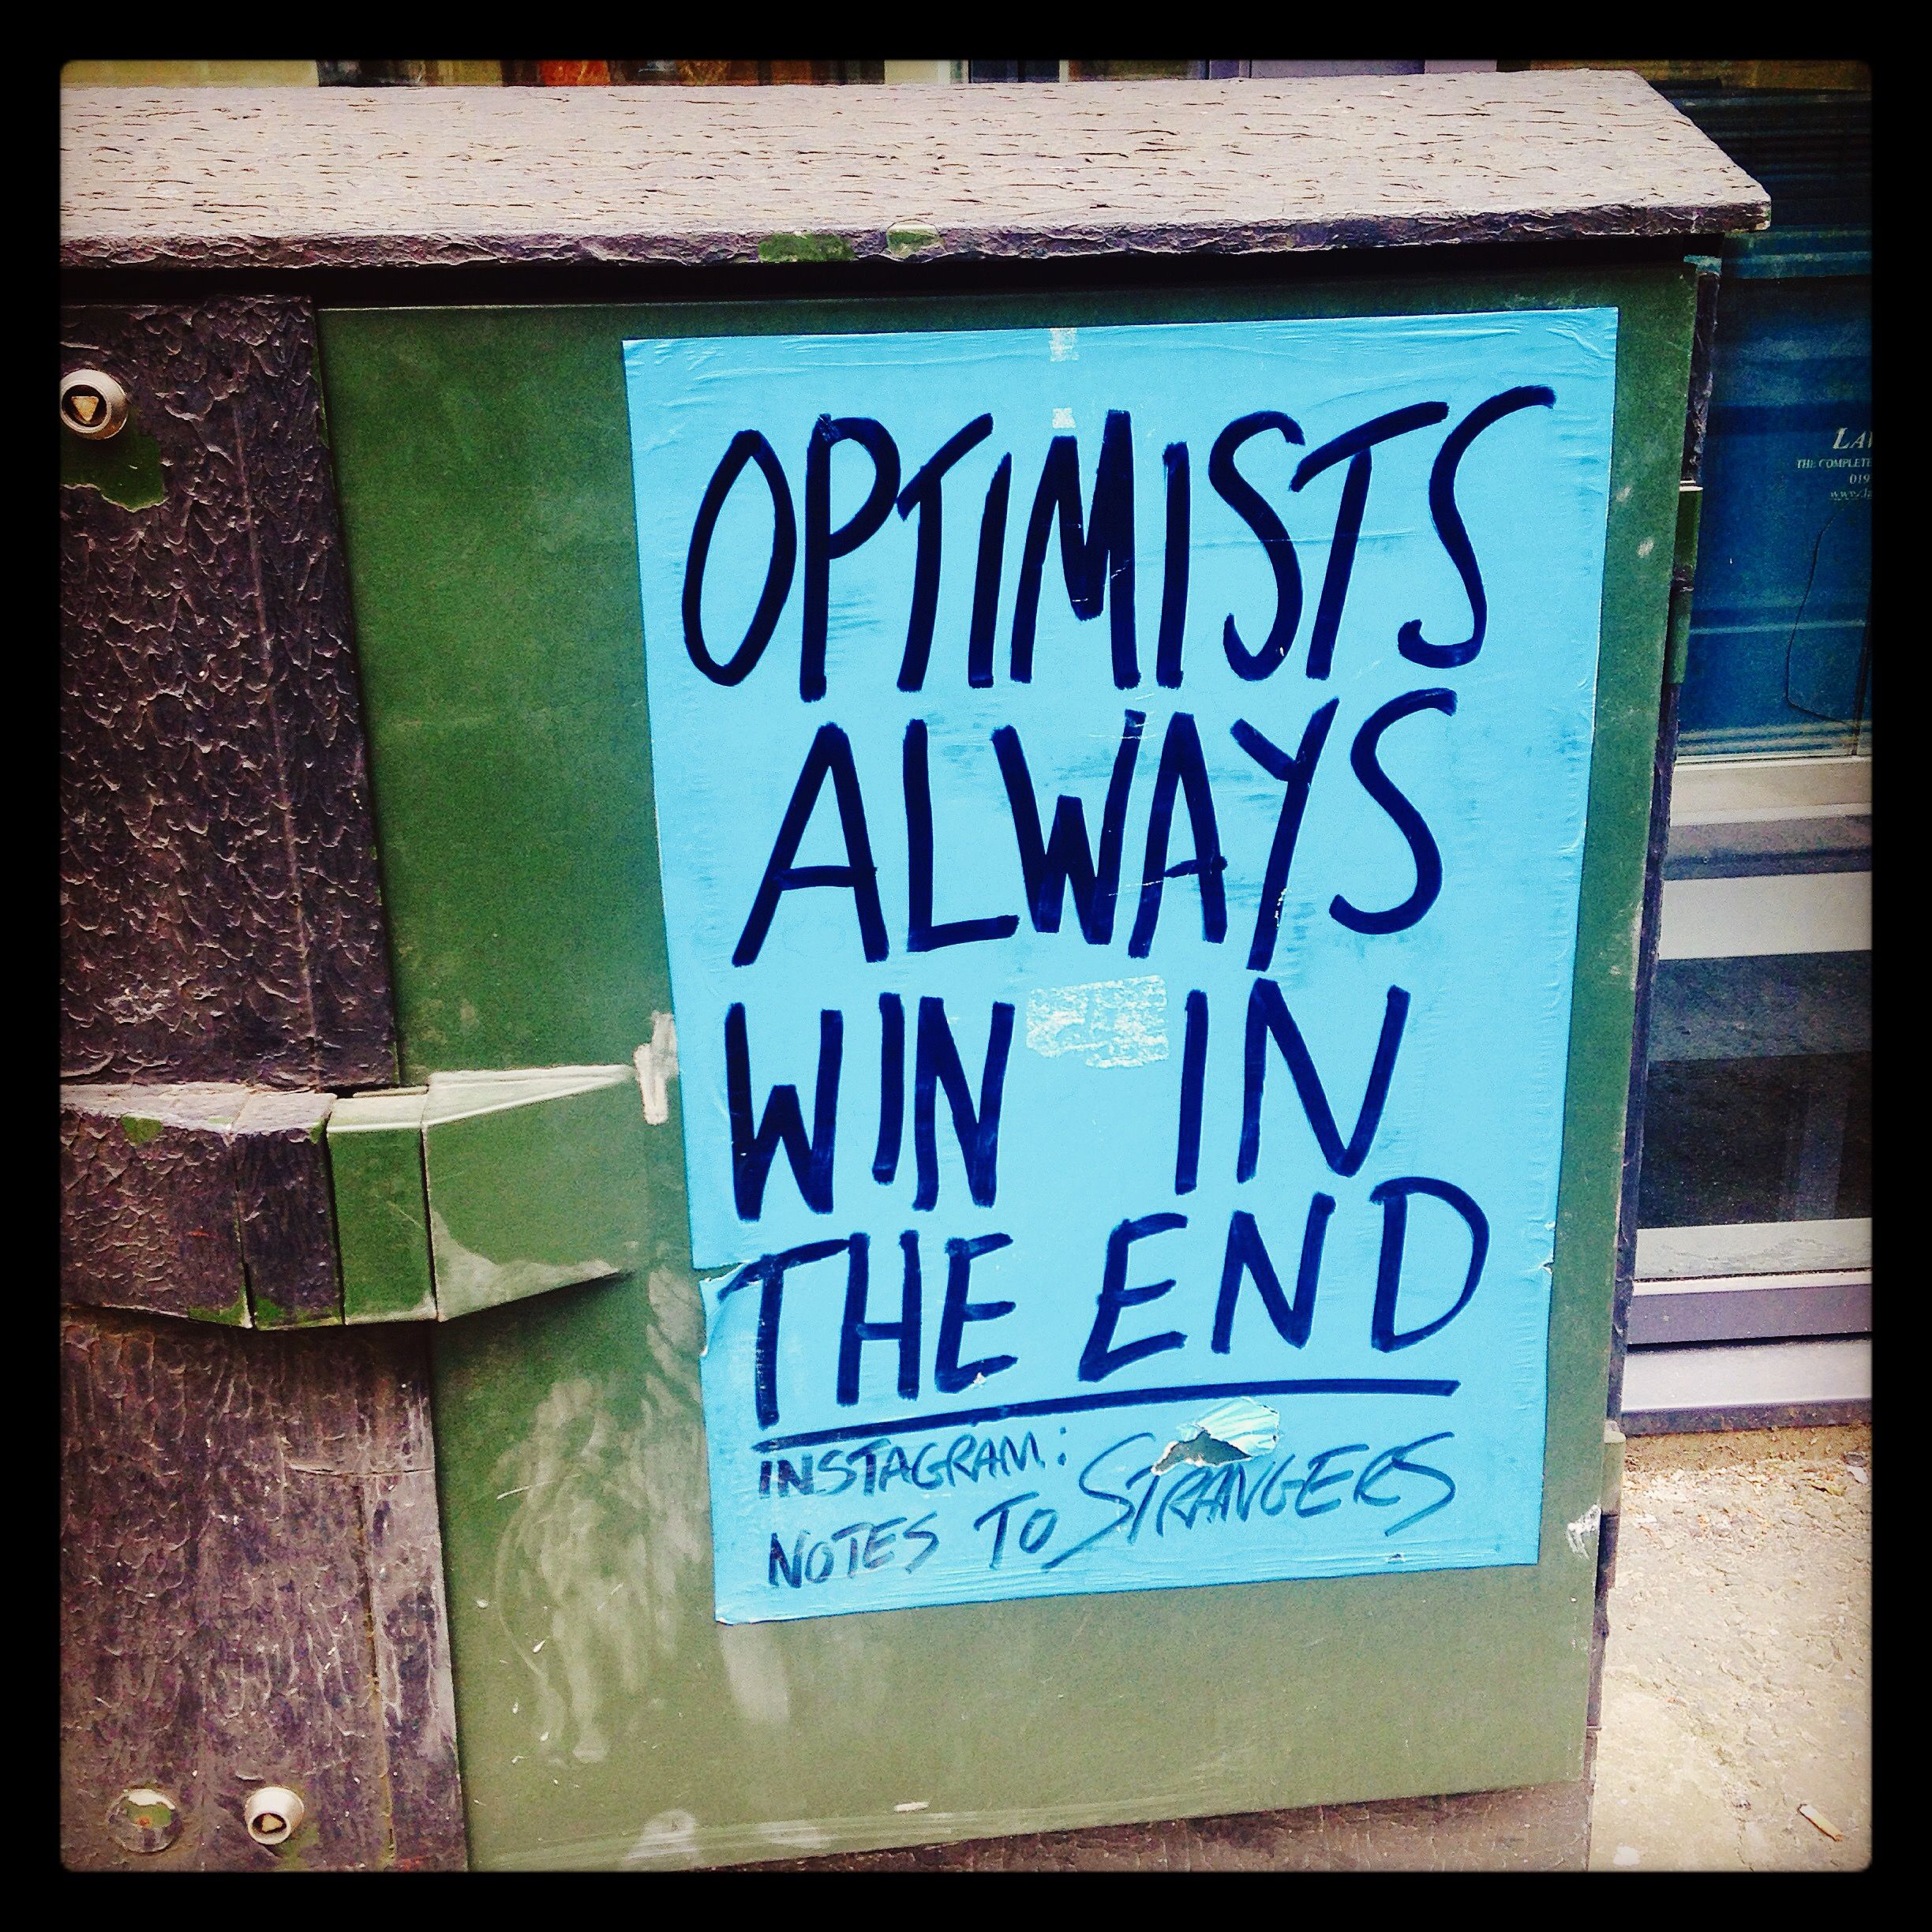 OPTIMISTS
ALWAYS
WIN IN
THE END
INSTAGRAM:
NOTES TO STRANGERS
THE COMPLETE
019